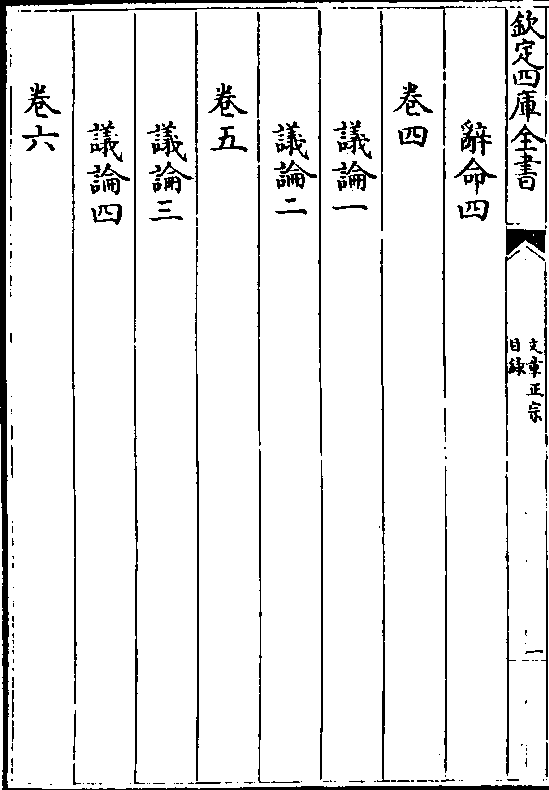 欽定四庫全書
文章正宗
目錄
一
辭命四
卷四
議論一
議論二
卷五
議論三
議論四
卷六